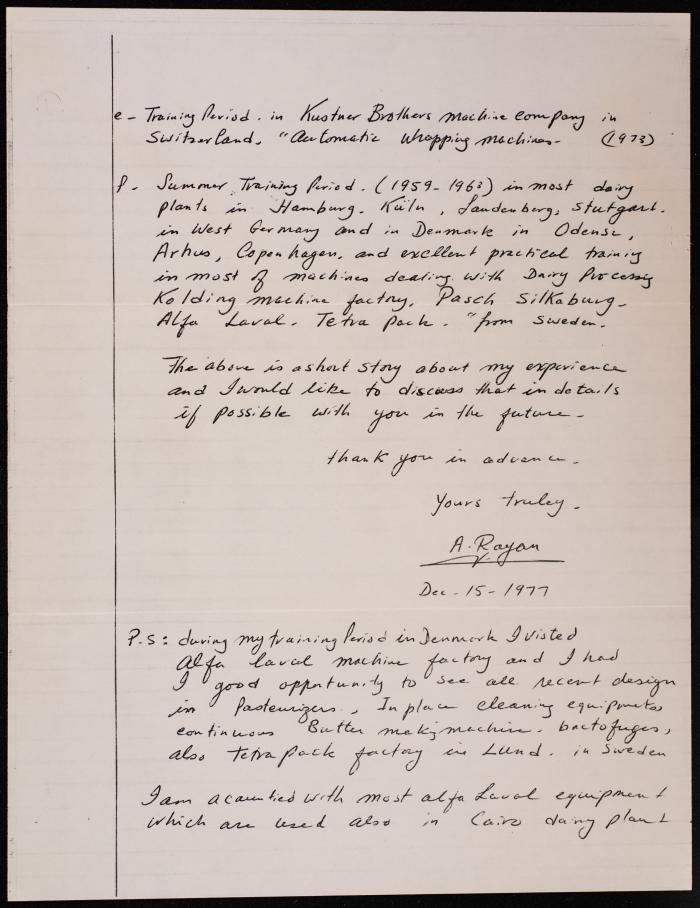 e - Training Period. in Kustner Brothers machine company in
Switzerland. "Automatic Wrapping machines. (1973)
f. Summer Training Period. (1959-1963) in most dairy
plants in Hamburg. Küln, Landenberg, Stutgart.
in West Germany and in Denmark in Odense,
Arhus, Copenhagen, and excellent practical training
in most of machines dealing with Dairy Processing
Kolding machine factory, Pasch Silkaburg.
Alfa Laval. Tetra Pack. "from Sweden.
The above is a short story about my experience
and I would like to discuss that in details
if possible with you in the future.
thank you in advance.
Yours truley.
A. Rayan
Dec - 15 - 1977
P.S: during my training Period in Denmark I visted
Alfa laval machine factory and I had
I good opportunity to see all recent design
in Pasteurizers, In place cleaning equipments
continuous Butter making machine. bactofuges,
also Tetra Pack factory in Lund. in Sweden
I am acauntied with most alfa Laval equipment
which are used also in Cairo dairy plant